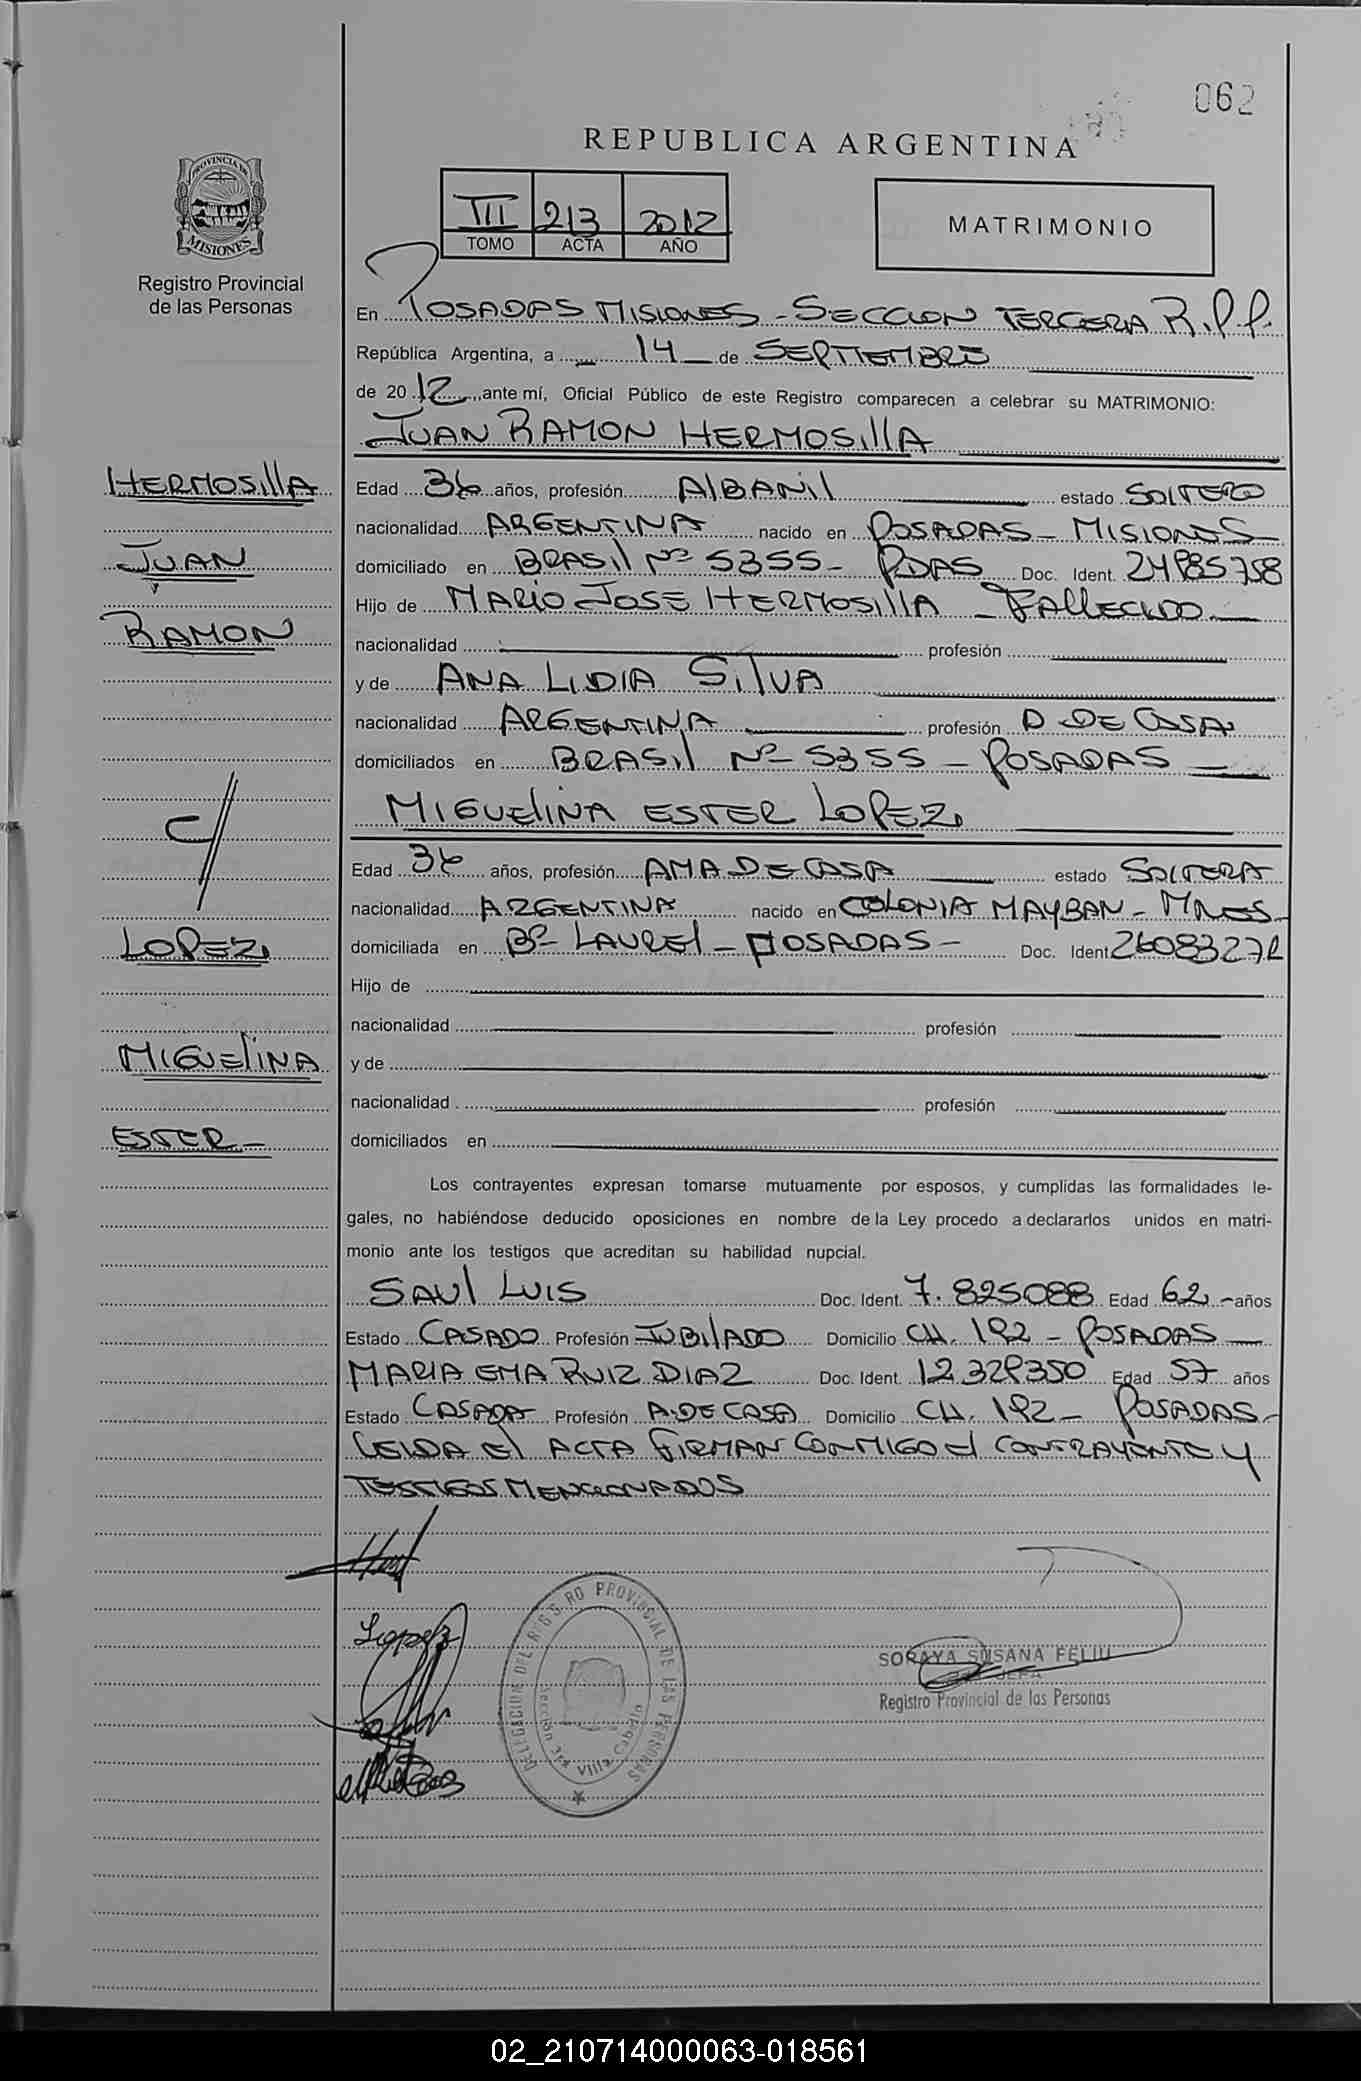 062
REPUBLICA ARGENTINA
PROVINCIA DE
MISIONES
Registro Provincial
de las Personas
III 213 2012
TOMO ACTA AÑO
MATRIMONIO
En POSADAS MISIONES - SECCION TERCERA R.P.P.
República Argentina, a 14 de SEPTIEMBRE
de 2012, ante mí, Oficial Público de este Registro comparecen a celebrar su MATRIMONIO:
JUAN RAMON HERMOSIllA
HERMOSIllA
JUAN
RAMON
C/
LOPEZ
MIGUElINA
ESTER -
Edad 36 años, profesión AlBAÑIl estado SOLTERO
nacionalidad ARGENTINA nacido en POSADAS - MISIONES
domiciliado en BRASIl Nº 5355 - PDAS Doc. Ident. 24985758
Hijo de MARIO JOSE HERMOSIllA - FAllECIDO
nacionalidad profesión
y de ANA LIDIA SIlVA
nacionalidad ARGENTINA profesión D DE CASA
domiciliados en BRASIl Nº 5355 - POSADAS
MIGUElINA ESTER LOPEZ
Edad 36 años, profesión AMA DE CASA estado SOLTERA
nacionalidad ARGENTINA nacido en COLONIA MAYBAN - MNES
domiciliada en Bº LAUREl - POSADAS - Doc. Ident
Hijo de
nacionalidad profesión
y de
nacionalidad profesión
domiciliados en
Los contrayentes expresan tomarse mutuamente por esposos, y cumplidas las formalidades le-
gales, no habiéndose deducido oposiciones en nombre de la Ley procedo a declararlos unidos en matri-
monio ante los testigos que acreditan su habilidad nupcial.
SAUl LUIS Doc. Ident. 7.825088 Edad 62 - años
Estado CASADO Profesión JUBIlADO Domicilio CH. 192 - POSADAS
MARIA EMA RUIZ DIAZ Doc. Ident. 12329350 Edad 57 años
Estado CASADA Profesión A. DE CASA Domicilio CH. 192 - POSADAS -
LEIDA El ACTA FIRMAN CONMIGO El CONTRAYENTE Y
TESTIGOS MENCIONADOS
Lopez
DELEGACION DEL REGISTRO PROVINCIAL DE LAS PERSONAS
Sección 3ra Villa Cabello
SORAYA SUSANA FELIU
JEFA
Registro Provincial de las Personas
02_210714000063-018561